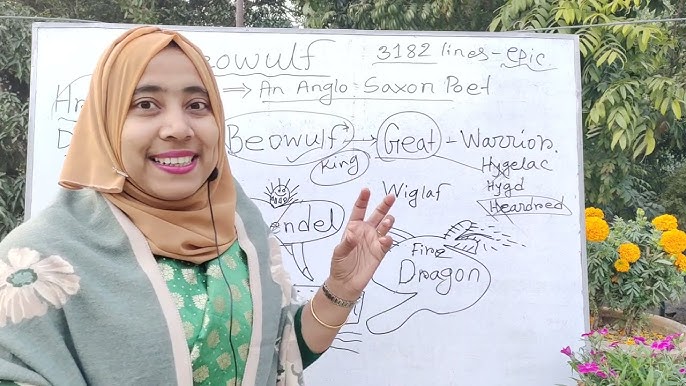 eowulf 3182 lines - epic
Hr ⇒ An Anglo-Saxon Poet
D Beowulf → Geat - Warrior.
King Hygelac
Wiglaf Hygd
Heardred
endel
Fire
Dragon